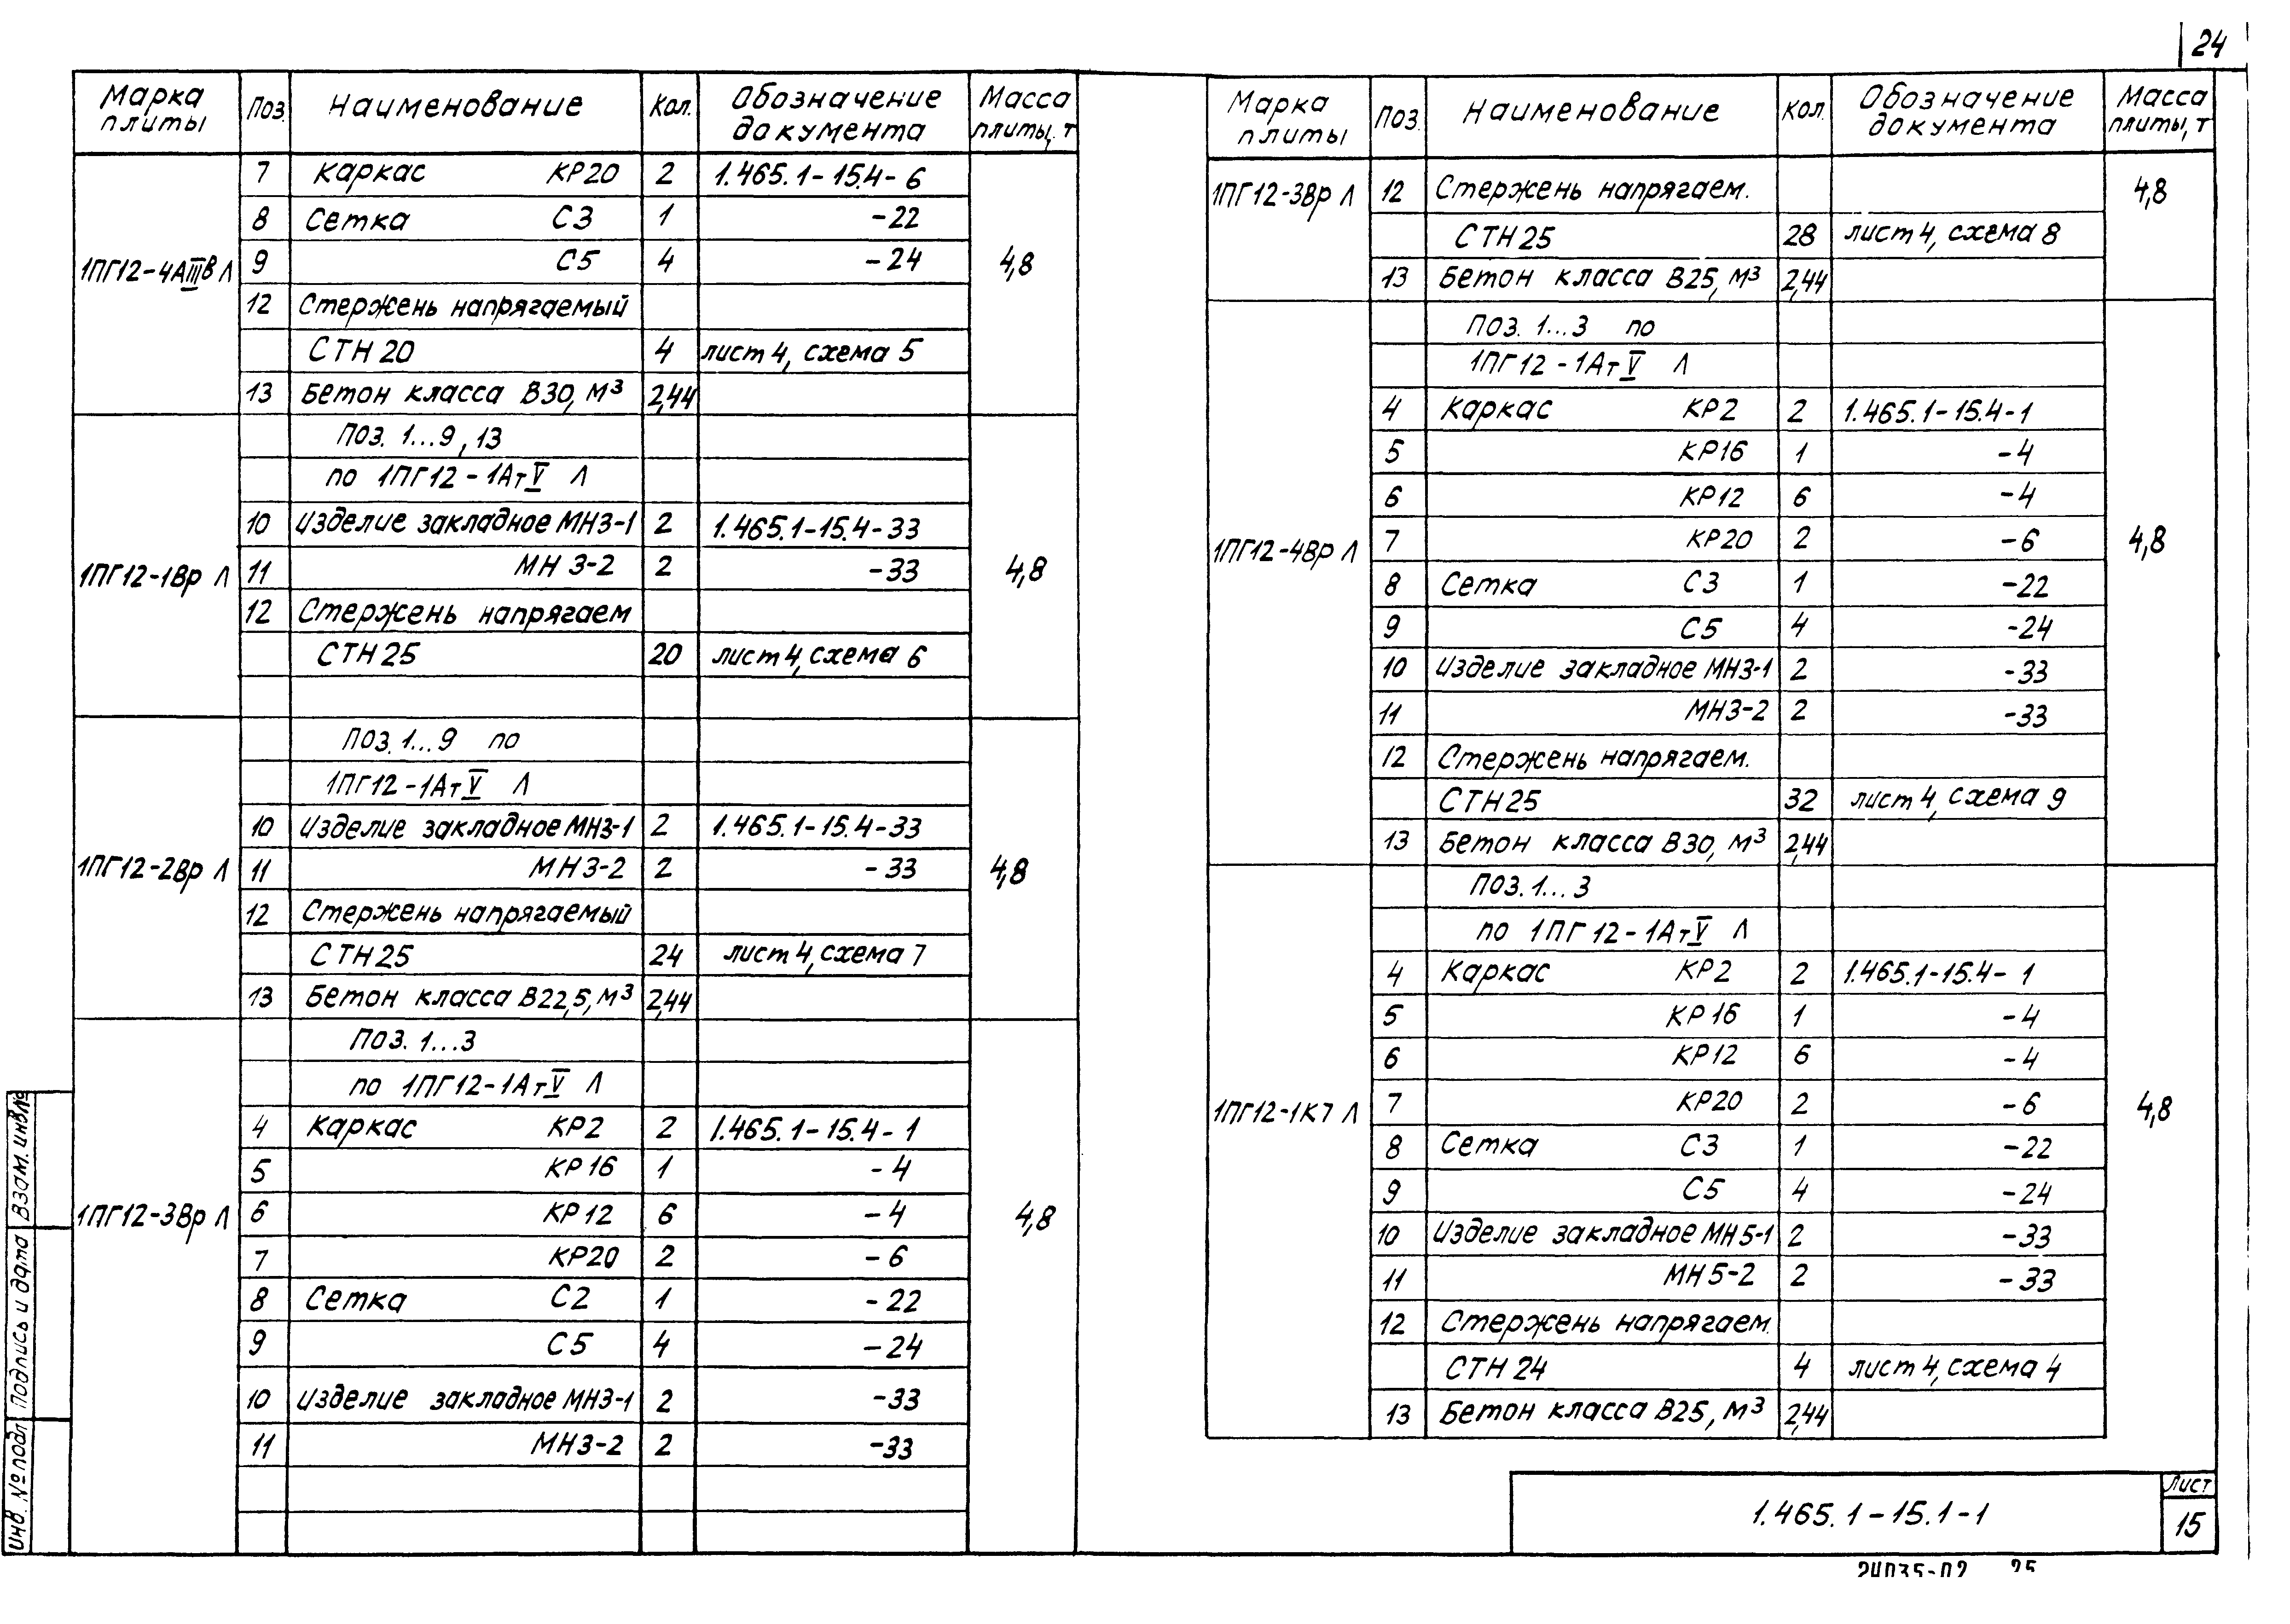 24
Марка плиты Поз. Наименование Кол. Обозначение документа Масса плиты, т
7 Каркас КР20 2 1.465.1-15.4-6
8 Сетка С3 1 -22
1ПГ12-4АIIIв Л 9 С5 4 -24 4,8
12 Стержень напрягаемый
СТН20 4 лист 4, схема 5
13 Бетон класса В30, м³ 2,44
Поз. 1...9, 13
по 1ПГ12-1АтV Л
10 Изделие закладное МН3-1 2 1.465.1-15.4-33
1ПГ12-1Вр Л 11 МН3-2 2 -33 4,8
12 Стержень напрягаем
СТН25 20 лист 4, схема 6
Поз. 1...9 по
1ПГ12-1АтV Л
10 Изделие закладное МН3-1 2 1.465.1-15.4-33
1ПГ12-2Вр Л 11 МН3-2 2 -33 4,8
12 Стержень напрягаемый
СТН25 24 лист 4, схема 7
13 Бетон класса В22,5, м³ 2,44
Поз. 1...3
по 1ПГ12-1АтV Л
4 Каркас КР2 2 1.465.1-15.4-1
5 КР16 1 -4
1ПГ12-3Вр Л 6 КР12 6 -4 4,8
7 КР20 2 -6
8 Сетка С2 1 -22
9 С5 4 -24
10 Изделие закладное МН3-1 2 -33
11 МН3-2 2 -33
Марка плиты Поз. Наименование Кол. Обозначение документа Масса плиты, т
1ПГ12-3Вр Л 12 Стержень напрягаем. 4,8
СТН25 28 лист 4, схема 8
13 Бетон класса В25, м³ 2,44
Поз. 1...3 по
1ПГ12-1АтV Л
4 Каркас КР2 2 1.465.1-15.4-1
5 КР16 1 -4
6 КР12 6 -4
1ПГ12-4Вр Л 7 КР20 2 -6 4,8
8 Сетка С3 1 -22
9 С5 4 -24
10 Изделие закладное МН3-1 2 -33
11 МН3-2 2 -33
12 Стержень напрягаем.
СТН25 32 лист 4, схема 9
13 Бетон класса В30, м³ 2,44
Поз. 1...3
по 1ПГ12-1АтV Л
4 Каркас КР2 2 1.465.1-15.4-1
5 КР16 1 -4
6 КР12 6 -4
1ПГ12-1К7 Л 7 КР20 2 -6 4,8
8 Сетка С3 1 -22
9 С5 4 -24
10 Изделие закладное МН5-1 2 -33
11 МН5-2 2 -33
12 Стержень напрягаем.
СТН24 4 лист 4, схема 4
13 Бетон класса В25, м³ 2,44
Инв. № подл. Подпись и дата Взам. инв №
1.465.1-15.1-1
Лист
15
24035-02 25